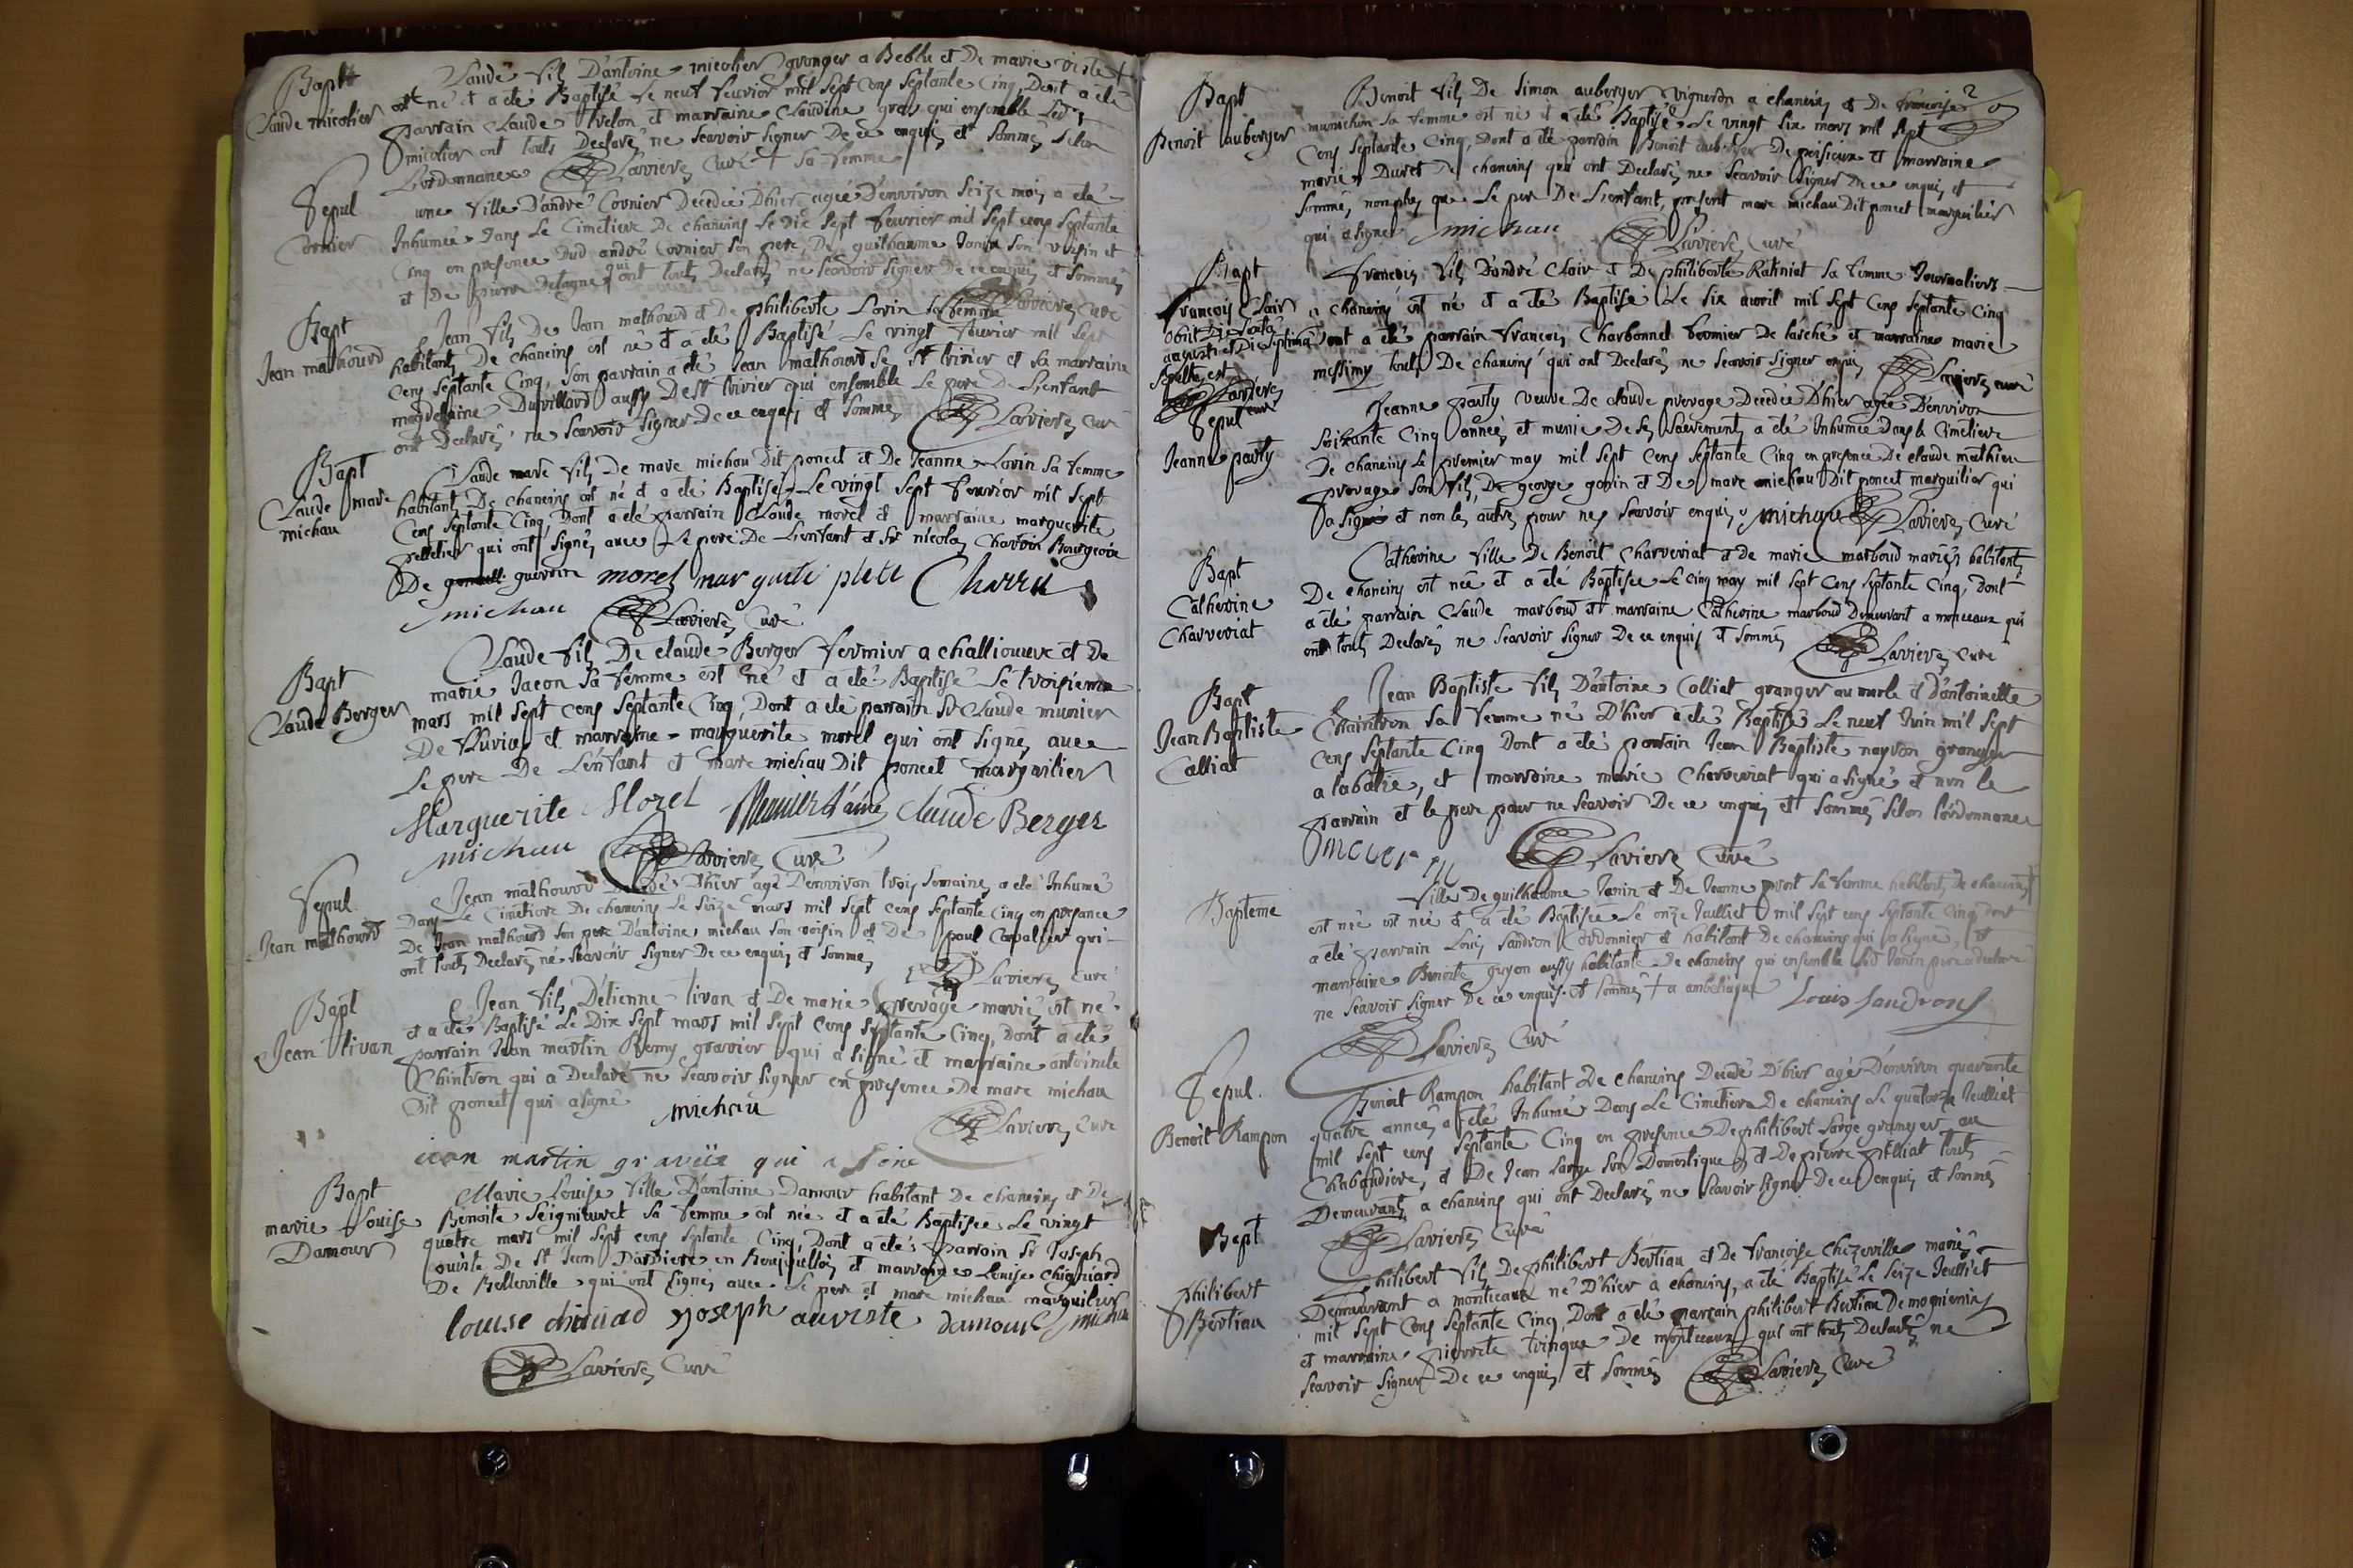 Bapt
Claude micolier
Claude fils D'antoine micolier granger a Beblu et De marie viste +
est né et a eté Baptisé Le neuf feuvrier mil sept cens septante cinq, Dont a été
parrain Claude Trelon et marraine Claudine gras qui ensemble Led.
micolier ont touts Declarés ne scavoir signer De ce enquis et sommés selon
L'ordonnance Laviere curé + sa femme
Sepul
Cornier
une fille D'andré Cornier Decedée D'hier agée D'environ seize mois a eté
Inhumée Dans Le Cimetiere De chaneins Le Dix sept feuvrier mil sept cens septante
Cinq en presence Dud andré Cornier son pere, De guilhaume Janin son voisin et
et De pierre Delagne qui ont touts Declarés ne scavoir signer De ce enquis et sommés
Laviere curé
Bapt
Jean malhourd
Jean fils De Jean malhourd et De philiberte Lorin sa femme
habitants De chaneins est né et a eté Baptisé Le vingt feuvrier mil sept
cens septante Cinq, son parrain a eté Jean malhourd De st trivier et sa marraine
magdelaine Duvillard aussy De st trivier qui ensemble Le pere De L'enfant
ont Declarés ne scavoir signer De ce enquis et sommés Laviere curé
Bapt
Claude marc
michau
Claude marc fils De marc michau Dit poncet et De Jeanne Lorin sa femme
habitants De chaneins est né et a eté Baptisé Le vingt sept feuvrier mil sept
Cens septante Cinq, Dont a eté parrain Claude morel et marraine marguerite
pelletier qui ont signés avec Le pere De L'enfant et sr nicolas Charvin Bourgeois
De guerrein morel
michau Laviere Curé
Bapt
Claude Berger
Claude fils De claude Berger fermier a challiouvre et De
marie Jacon sa femme est né et a eté Baptisé Le troisieme
mars mil sept cens septante Cinq, Dont a eté parrain sr Claude munier
De fluvieu et marraine marguerite morel qui ont signés avec
Le pere De L'enfant et marc michau Dit poncet marguilier
Marguerite Morel Meunier L'ainé Claude Berger
michau Laviere Curé
Sepul
Jean malhourd
Jean malhourd Decedé D'hier agé D'environ trois semaines a eté Inhumé
Dans Le Cimetiere De chaneins Le seize mars mil sept cens septante Cinq en presance
De Jean malhourd son pere D'antoine michau son voisin et De paul Cavalier qui
ont touts Declarés ne scavoir signer De ce enquis et sommés Laviere Curé
Bapt
Jean tivan
Jean fils D'etienne tivan et De marie prevage mariés est né
et a eté Baptisé Le Dix sept mars mil sept cens septante Cinq, Dont a eté
parrain Jean martin Remy gravier qui a signé et marraine antoinete
Chintron qui a Declaré ne scavoir signer en presence De marc michau
Dit poncet qui a signé michau Laviere Curé
iean martin graviix qui a sine
Bapt
marie Louise
Damour
Marie Louise fille D'antoine Damour habitant De chaneins et De
Benoite seignieuret sa femme est née et a eté Baptisée Le vingt
quatre mars mil sept cens septante Cinq, Dont a eté parrain sr Joseph
De st Jean D'ardiere en Beaujollois et marraine Louise chigniard
De Belleville qui ont signés avec Le pere et marc michau marguilier
louise yoseph damour michau
Laviere Curé
Bapt
Benoit auberger
Benoit fils De simon auberger vigneron a chaneins et De francoise
munichon sa femme est né et a eté Baptisé Le vingt six mars mil sept
cens septante cinq, Dont a eté parrain Benoit auberger De peisieux et marraine
marie Duret De chaneins qui ont Declarés ne scavoir signer De ce enquis et
sommés, non plus que Le pere De L'enfant, present marc michau Dit poncet marguilier
qui a signé michau Laviere Curé
Bapt
francois Clair
obiit Die sexta
augusti et Die septima
sepultus est
Laviere
curé
francois fils D'andré Clair et De philiberte Ratiniat sa femme Journaliers
a chaneins est né et a eté Baptisé Le six avril mil sept cens septante Cinq
Dont a eté parrain francois Charbonnel fermier De l'arché et marraine marie
messimy touts De chaneins qui ont Declarés ne scavoir signer enquis Laviere curé
Sepul
Jeanne party
Jeanne party veuve De claude prevage Decedée D'hier agée D'environ
soixante cinq années et munie De ses sacrements a eté Inhumée Dans le Cimetiere
De chaneins Le premier may mil sept cens septante Cinq en presence De claude mathieu
prevage son fils, De george gobin et De marc michau Dit poncet marguilier qui
a signé et non les autres pour ne scavoir enquis michau Laviere Curé
Bapt
Catherine
Charveriat
Catherine fille De Benoit Charveriat et De marie marboud mariés habitants
De chaneins est née et a eté Baptisée Le cinq may mil sept cens septante Cinq, Dont
a eté parrain Claude marboud et marraine Catherine marboud Demeurant a monceaux qui
ont touts Declarés ne scavoir signer De ce enquis et sommés Laviere Curé
Bapt
Jean Baptiste
Calliat
Jean Baptiste fils D'antoine Calliat granger au marle et D'antoinette
Chaintron sa femme né D'hier a eté Baptisé Le neuf Juin mil sept
cens septante Cinq Dont a eté parrain Jean Baptiste nayron granger
a labatie, et marraine marie Charveriat qui a signé et non le
parrain et le pere pour ne scavoir De ce enquis et sommés selon L'ordonnance
Laviere Curé
Bapteme
fille De guilhaume Janin et De Jeanne prost sa femme habitants De chaneins
est née est née et a eté Baptisée Le onze Juilliet mil sept cens septante Cinq dont
a eté parrain Louis Sandron Cordonnier et habitant De chaneins qui a signé, et
marraine Benoite guyon aussy habitante De chaneins qui ensemble led Janin pere a declaré
ne scavoir signer De ce enquis et sommés Louis Sandron
Laviere Curé
Sepul.
Benoit Rampon
Benoit Rampon habitant De chaneins Decedé D'hier agé D'environ quarante
quatre années a eté Inhumé Dans Le Cimetiere De chaneins Le quatorze Jeulliet
mil sept cens septante Cinq en presence De philibert Large granger au
Chabaudiere, et De Jean Large son Domestique et De pierre pelliat touts
Demeurants a chaneins qui ont Declarés ne scavoir signer De ce enquis et sommés
Laviere Curé
Bapt
philibert
Bertiau
Philibert fils De philibert Bertiau et De francoise Chizeville mariés
Demeurant a montceaux né D'hier a chaneins, a eté Baptisé Le seize Jeulliet
mil sept cens septante Cinq, Dont a eté parrain philibert Bertiau De mogneneins
et marraine pierrette tringue De montceaux qui ont touts Declarés ne
scavoir signer De ce enquis et sommés Laviere Curé